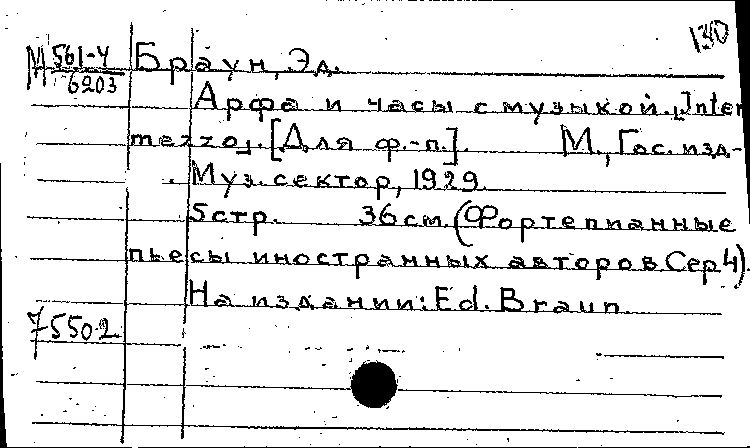 130
М 561-4 Браун, Эд.
6203
Арфа и часы с музыкой. [Inter
mezzo]. [Для ф.-п.]. М., Гос. изд-
Муз. сектор, 1929.
5 стр. 36 см. (Фортепианные
пьесы иностранных авторов Сер 4).
На издании: Ed. Braun
75502